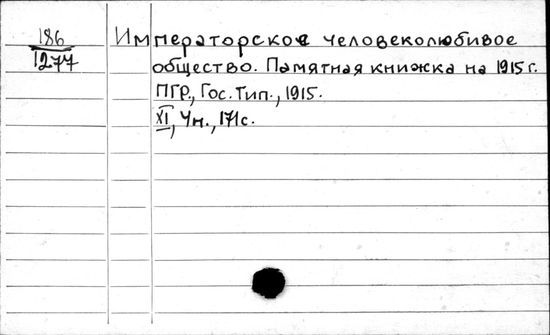 186
1277
Императорское человеколюбивое
общество. Памятная книжка на 1915 г.
ПГР., Гос. Тип., 1915.
XI, 4н., 171 с.